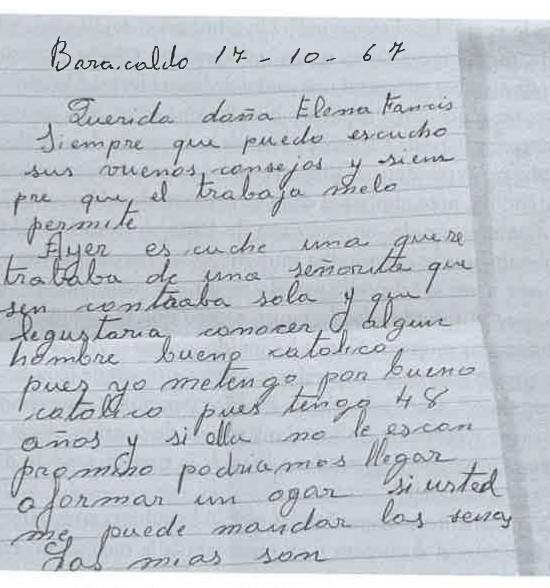 Baracaldo 17-10-67
Querida doña Elena Francis
Siempre que puedo escucho
sus vuenos consejos y siem
pre que el trabajo melo
permite
Ayer escuche una que re
trataba de una señorita que
sen contraba sola y que
legustaria conocer algun
hombre bueno catolico
pues yo metengo por bueno
catolico pues tengo 48
años y si ella no le es con
promiso podriamos llegar
aformar un ogar si usted
me puede mandar las senas
Las mias son